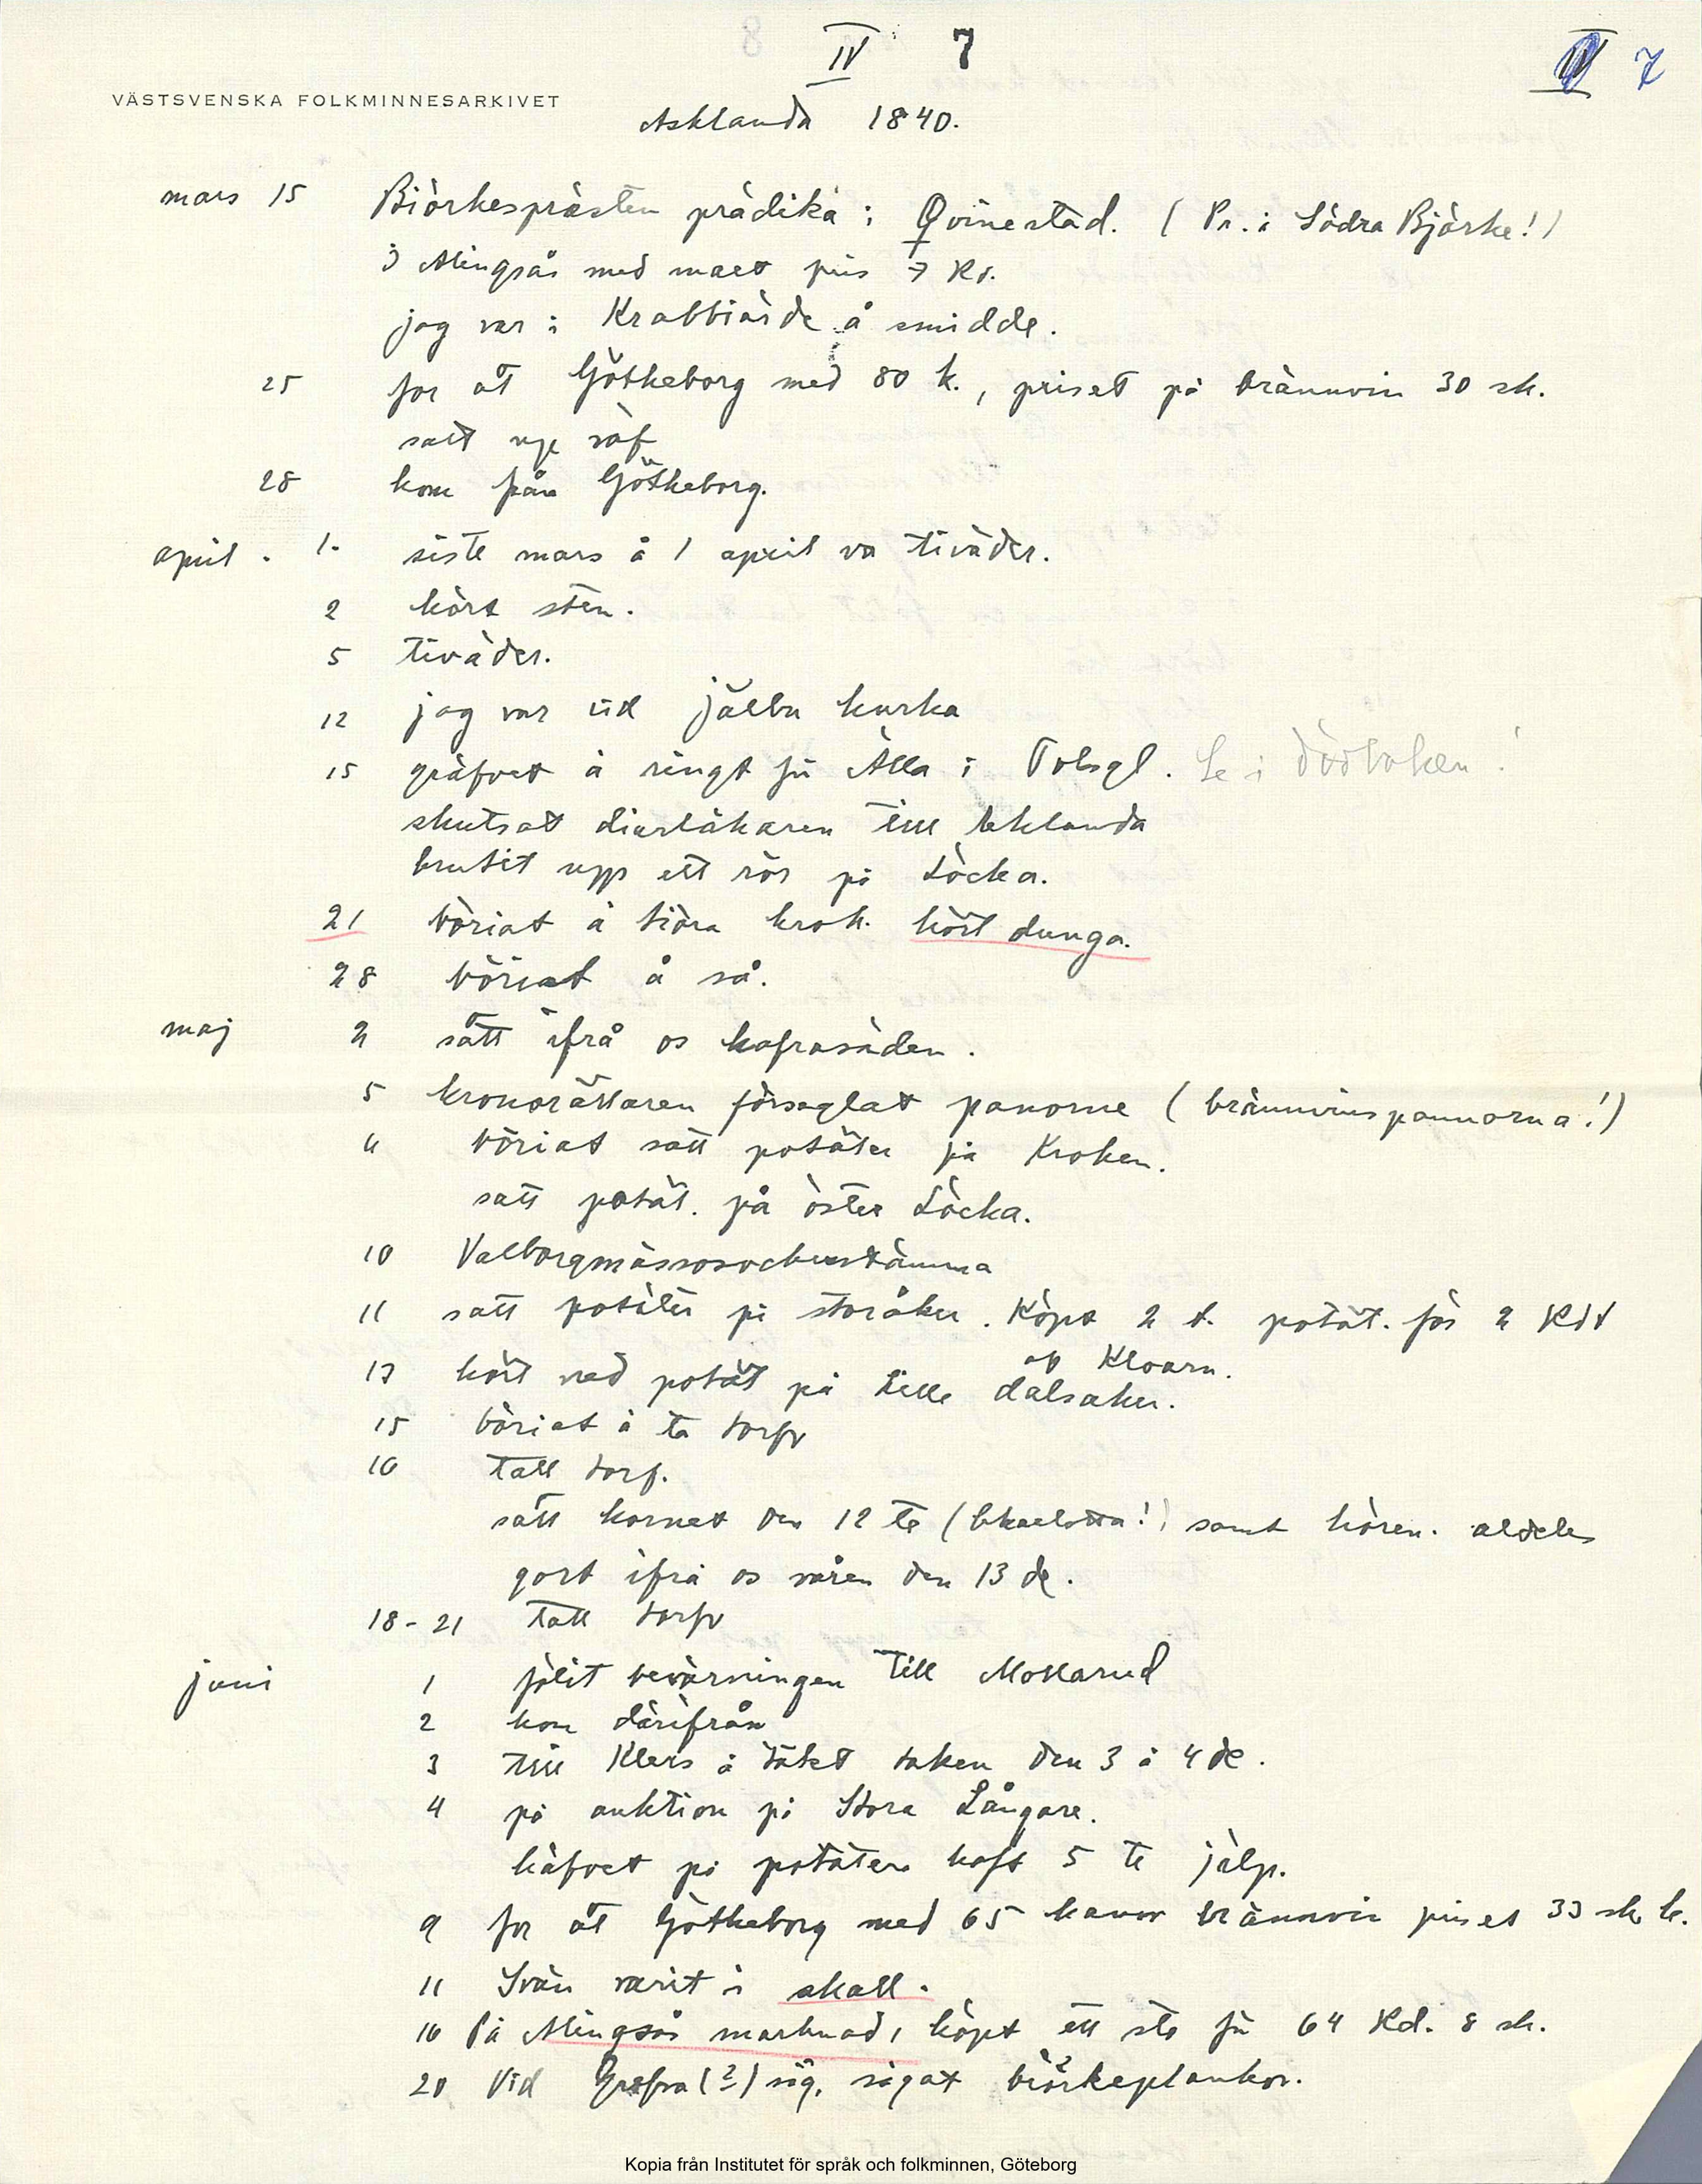 IV 7
IV 7
VÄSTSVENSKA FOLKMINNESARKIVET
Asklanda 1840.
mars 15 Biörkesprästen prädika i Qvinestad. (Pr. i Södra Björke!)
i Alingsås med maet pris 7 Rd.
jag var i Krabbiärde å smidde.
25 for åt Götheborg med 80 k., priset på brännvin 30 sk.
satt up råf
28 kom från Götheborg.
april. 1. siste mars å 1 april va tiväder.
2 kört sten.
5 tiväder.
12 jag var vid jälbu kurka
15 gräfvet å ringt för Älla i Tolsgl. Se i dödboken!
skutsat diurläkaren till Asklanda
brutit upp ett rör på Löcka.
21 böriat å tiöra krok. kört dunga.
28 böriat å så.
maj 2 sått ifrå os hafrasäden.
5 kronorättaren förseglat panorne (brännvinspannorna!)
6 böriat satt potäter på Kroken.
satt potät. på öster Löcka.
10 Valborgmässosockenstämma
11 satt potäter på storåker. Köpt 2 t. potät. för 2 Rdr
af Kloarn.
13 kört ned potät på Lille dalsaker.
15 böriat å ta torfv
16 tatt torf.
sått kornet den 12 te (Charlotta!) samt hören. aldeles
gort ifrå os våren den 13 de.
18-21 tatt torfv
juni 1 fölit bevärningen till Mollarud
2 kom därifrån
3 till Klers å täket taken den 3 å 4 de.
4 på auktion på Stora Långare.
häfvet på potäter haft 5 te jälp.
9 for åt Götheborg med 65 kanor brännvin priset 33 sk. k.
11 Svän varit i skall.
16 På Alingsås marknad, köpt ett sto för 64 Rd. 8 sk.
20 Vid Grefra(?) såg, sågat biörkeplankor.
Kopia från Institutet för språk och folkminnen, Göteborg